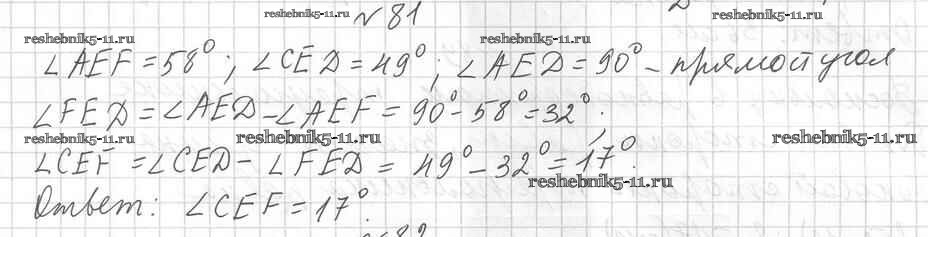 № 81
reshebnik5-11.ru
reshebnik5-11.ru reshebnik5-11.ru reshebnik5-11.ru
∠AEF = 58°; ∠CED = 49°; ∠AED = 90° – прямой угол
∠FED = ∠AED – ∠AEF = 90° – 58° = 32°;
reshebnik5-11.ru reshebnik5-11.ru reshebnik5-11.ru
∠CEF = ∠CED – ∠FED = 49° – 32° = 17°.
reshebnik5-11.ru
Ответ: ∠CEF = 17°.